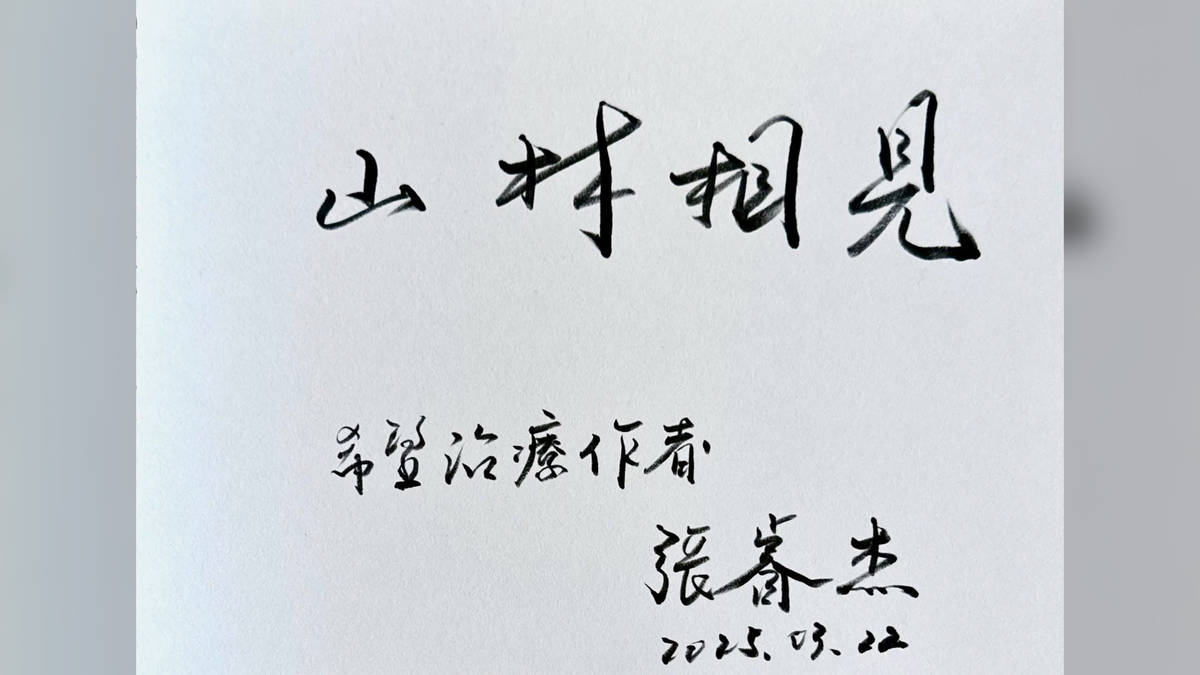 山林相見
希望治療作者
張睿杰
2025.03.22